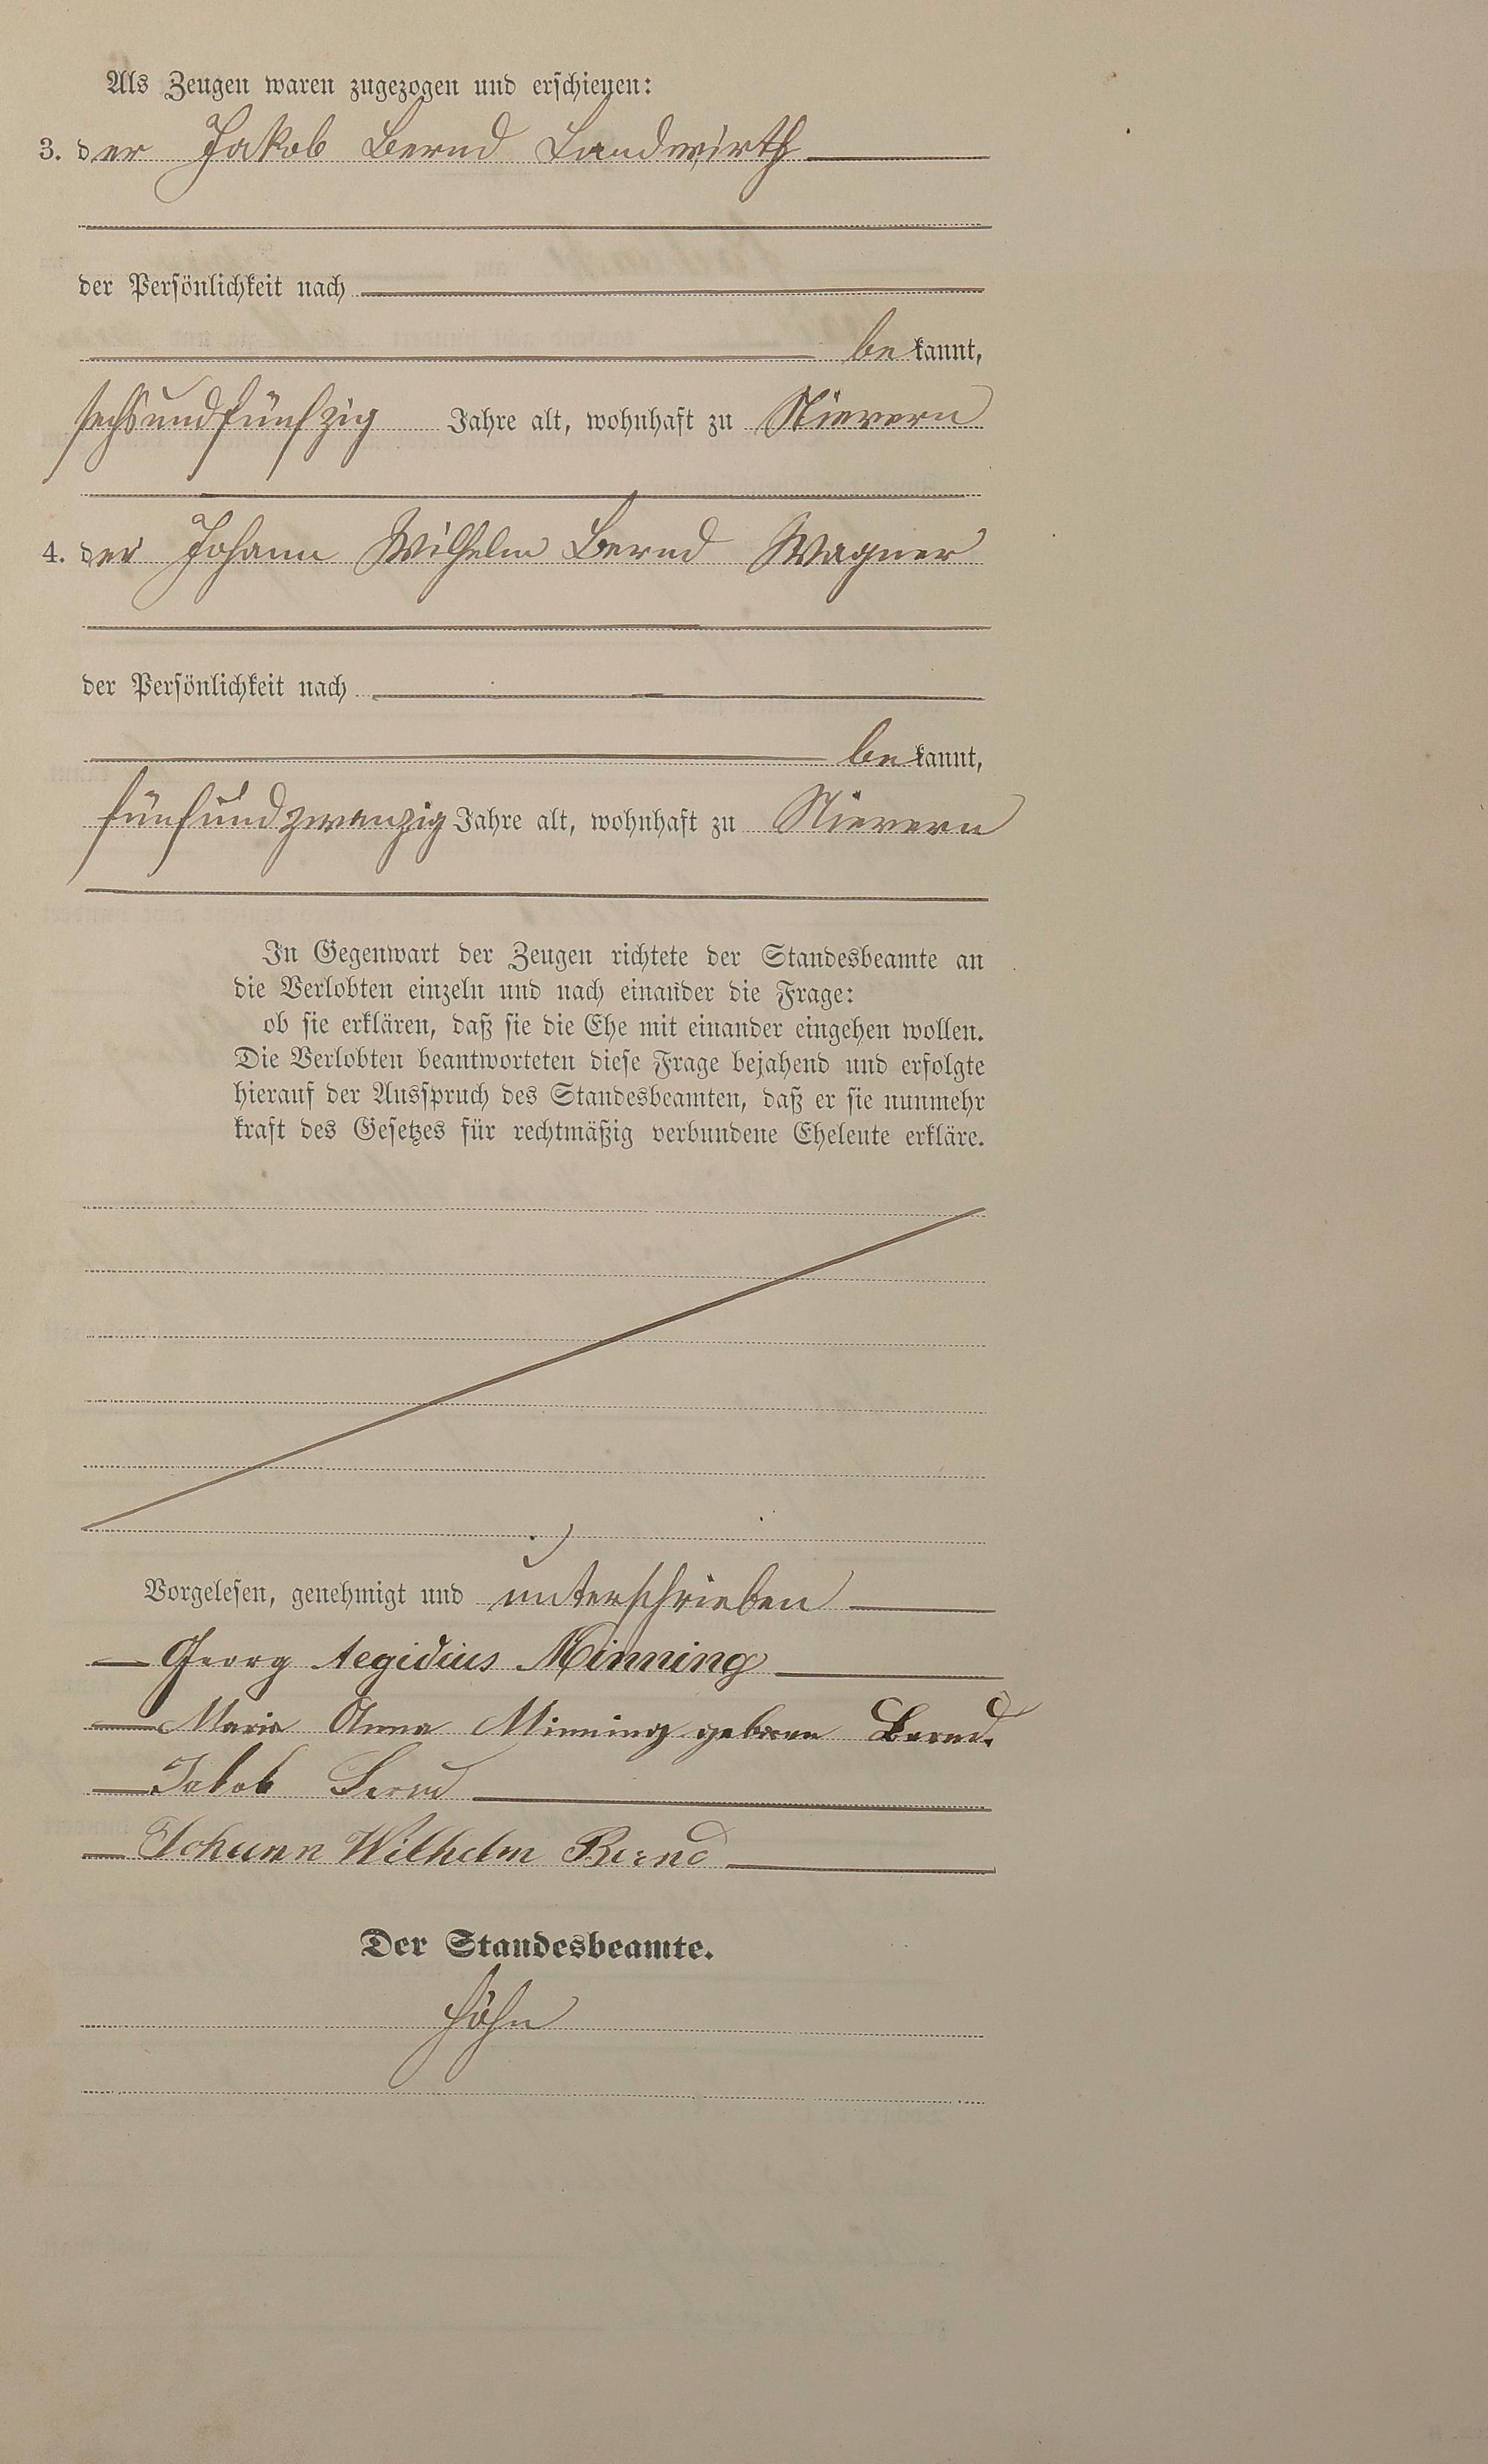 Als Zeugen waren zugezogen und erschienen:
3. der Jakob Bernd Landwirth
der Persönlichkeit nach
bekannt,
sechsundfünfzig Jahre alt, wohnhaft zu Nievern
4. der Johann Wilhelm Bernd Wagner
der Persönlichkeit nach
bekannt,
fünfundzwanzig Jahre alt, wohnhaft zu Nievern
In Gegenwart der Zeugen richtete der Standesbeamte an
die Verlobten einzeln und nach einander die Frage:
ob sie erklären, daß sie die Ehe mit einander eingehen wollen.
Die Verlobten beantworteten diese Frage bejahend und erfolgte
hierauf der Ausspruch des Standesbeamten, daß er sie nunmehr
kraft des Gesetzes für rechtmäßig verbundene Eheleute erkläre.
Vorgelesen, genehmigt und unterschrieben
Georg Aegidius Minning
Maria Anna Minning geboren Bernd.
Jakob Bernd
Johann Wilhelm Bernd
Der Standesbeamte.
Höhn